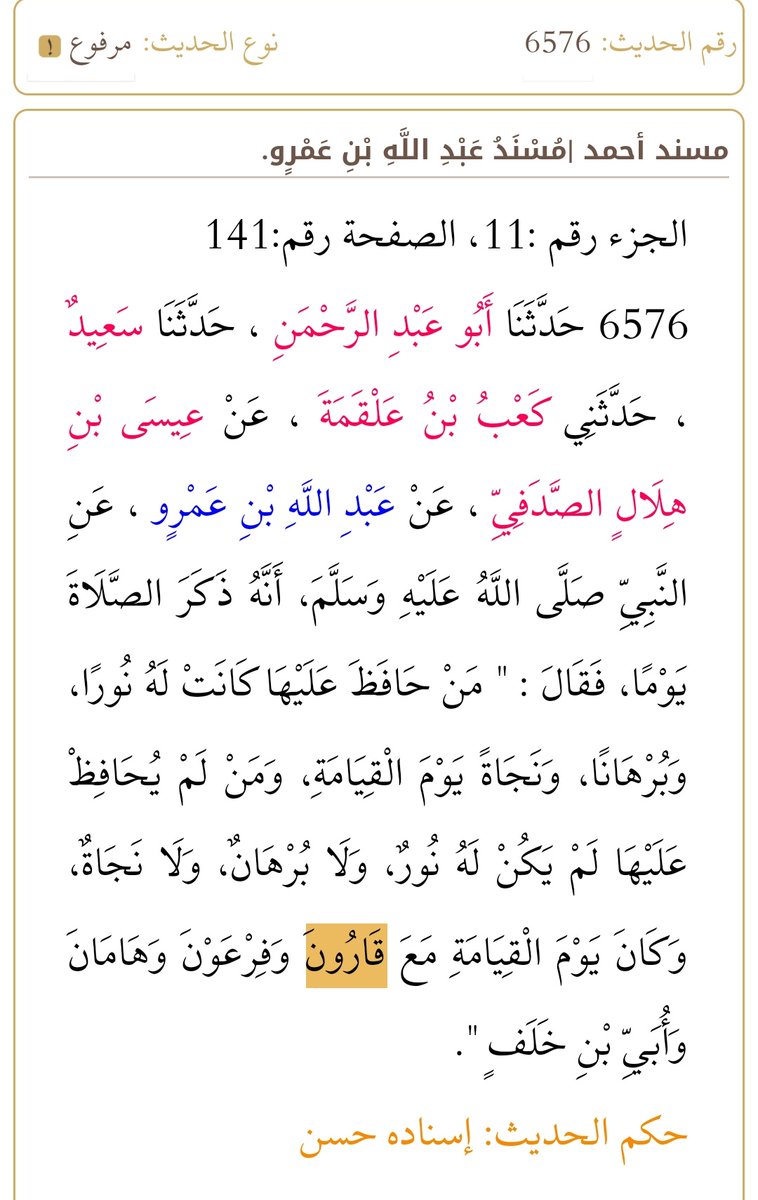 رقم الحديث: 6576 نوع الحديث: مرفوع
مسند أحمد |مُسْنَدُ عَبْدِ اللَّهِ بْنِ عَمْرٍو.
الجزء رقم :11، الصفحة رقم:141
6576 حَدَّثَنَا أَبُو عَبْدِ الرَّحْمَنِ ، حَدَّثَنَا سَعِيدٌ
، حَدَّثَنِي كَعْبُ بْنُ عَلْقَمَةَ ، عَنْ عِيسَى بْنِ
هِلَالٍ الصَّدَفِيِّ ، عَنْ عَبْدِ اللَّهِ بْنِ عَمْرٍو ، عَنِ
النَّبِيِّ صَلَّى اللَّهُ عَلَيْهِ وَسَلَّمَ، أَنَّهُ ذَكَرَ الصَّلَاةَ
يَوْمًا، فَقَالَ : " مَنْ حَافَظَ عَلَيْهَا كَانَتْ لَهُ نُورًا،
وَبُرْهَانًا، وَنَجَاةً يَوْمَ الْقِيَامَةِ، وَمَنْ لَمْ يُحَافِظْ
عَلَيْهَا لَمْ يَكُنْ لَهُ نُورٌ، وَلَا بُرْهَانٌ، وَلَا نَجَاةٌ،
وَكَانَ يَوْمَ الْقِيَامَةِ مَعَ قَارُونَ وَفِرْعَوْنَ وَهَامَانَ
وَأُبَيِّ بْنِ خَلَفٍ ".
حكم الحديث: إسناده حسن